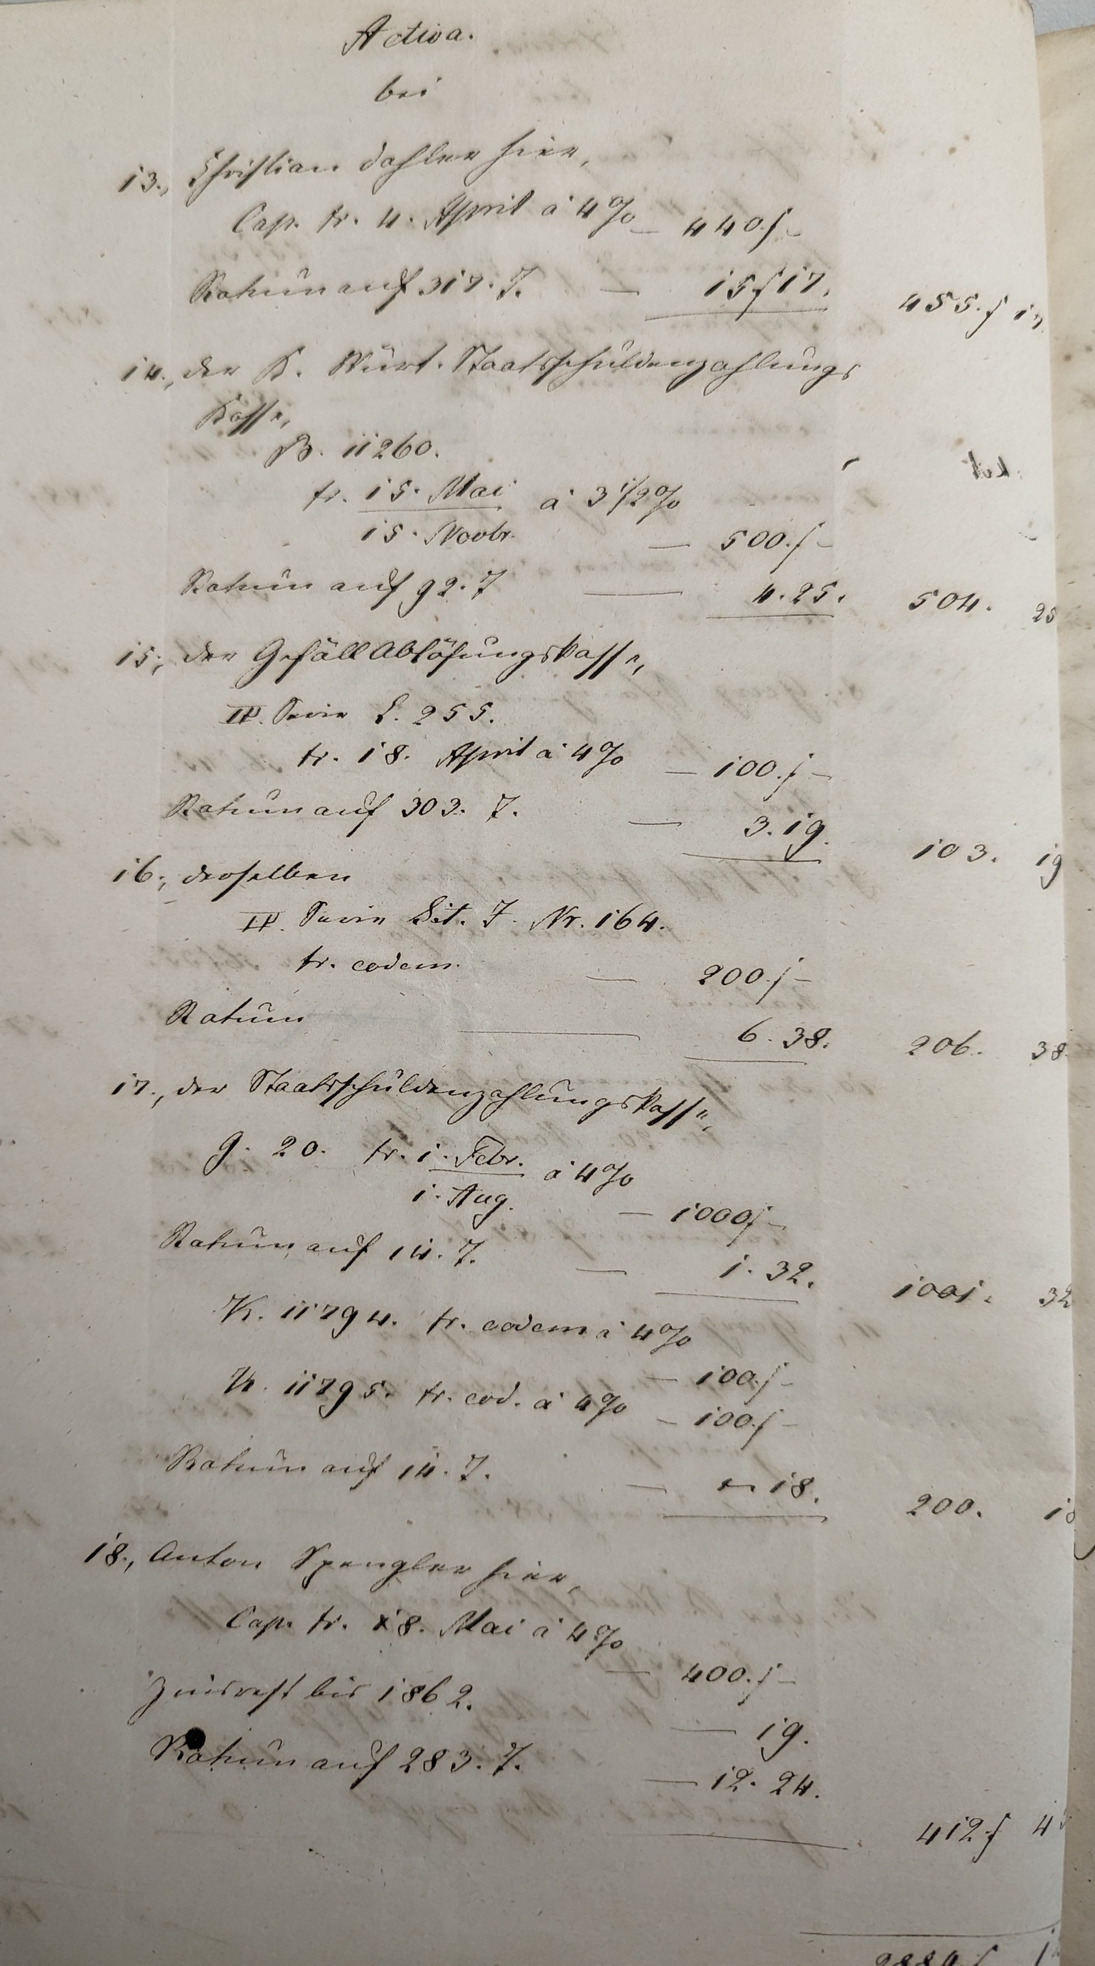 Activa.
bei
13., Christian Dahler hier,
Cap. tr. 4. April à 4% — 440.f –
Ratum auf 317. T. — 15f 17.
455.f 17
14., der K. Würt. Staatsschuldenzahlungs
Kasse,
B. 11260.
tr. 15. Mai à 3 1/2%
15. Novbr. — 500.f –
Ratum auf 92. T — 4. 25. 504. 25
15., der Gefäll Ablösungskasse,
IV. Serie L. 255.
tr. 18. April à 4% — 100.f –
Ratum auf 303. T. — 3. 19. 103. 19
16., derselben
IV. Serie Lit. J. Nr. 164.
tr. eodem. — 200f –
Ratum — 6. 38. 206. 38.
17., der Staatsschuldenzahlungskasse,
G. 20. tr. 1. Febr. à 4%
1. Aug. — 1000f –
Ratum auf 14. T. — 1. 32. 1001. 32
K. 11794. tr. eodem à 4% — 100.f –
K. 11795. tr. eod. à 4% — 100.f –
Ratum auf 14. T. — 18. 200. 18
18., Anton Spengler hier,
Cap. tr. 18. Mai à 4% — 400.f –
Zinsrest bis 1862. — 19.
Ratum auf 283. T. — 12. 24.
412f 4